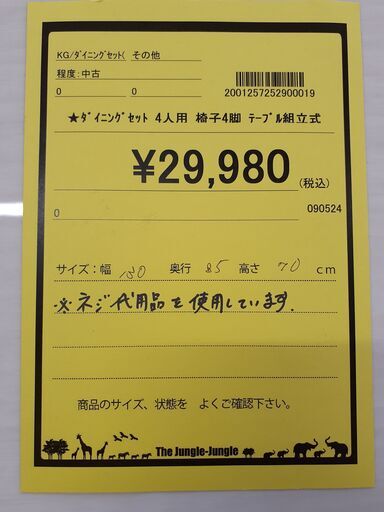 KG/ﾀﾞｲﾆﾝｸﾞｾｯﾄ( その他
程度:中古
0 0
2001257252900019
★ﾀﾞｲﾆﾝｸﾞｾｯﾄ 4人用 椅子4脚 ﾃｰﾌﾞﾙ組立式
¥29,980 (税込)
0 090524
サイズ:幅 150 奥行 85 高さ 70 cm
※ネジ代用品を使用しています.
商品のサイズ、状態を よくご確認下さい。
The Jungle-Jungle